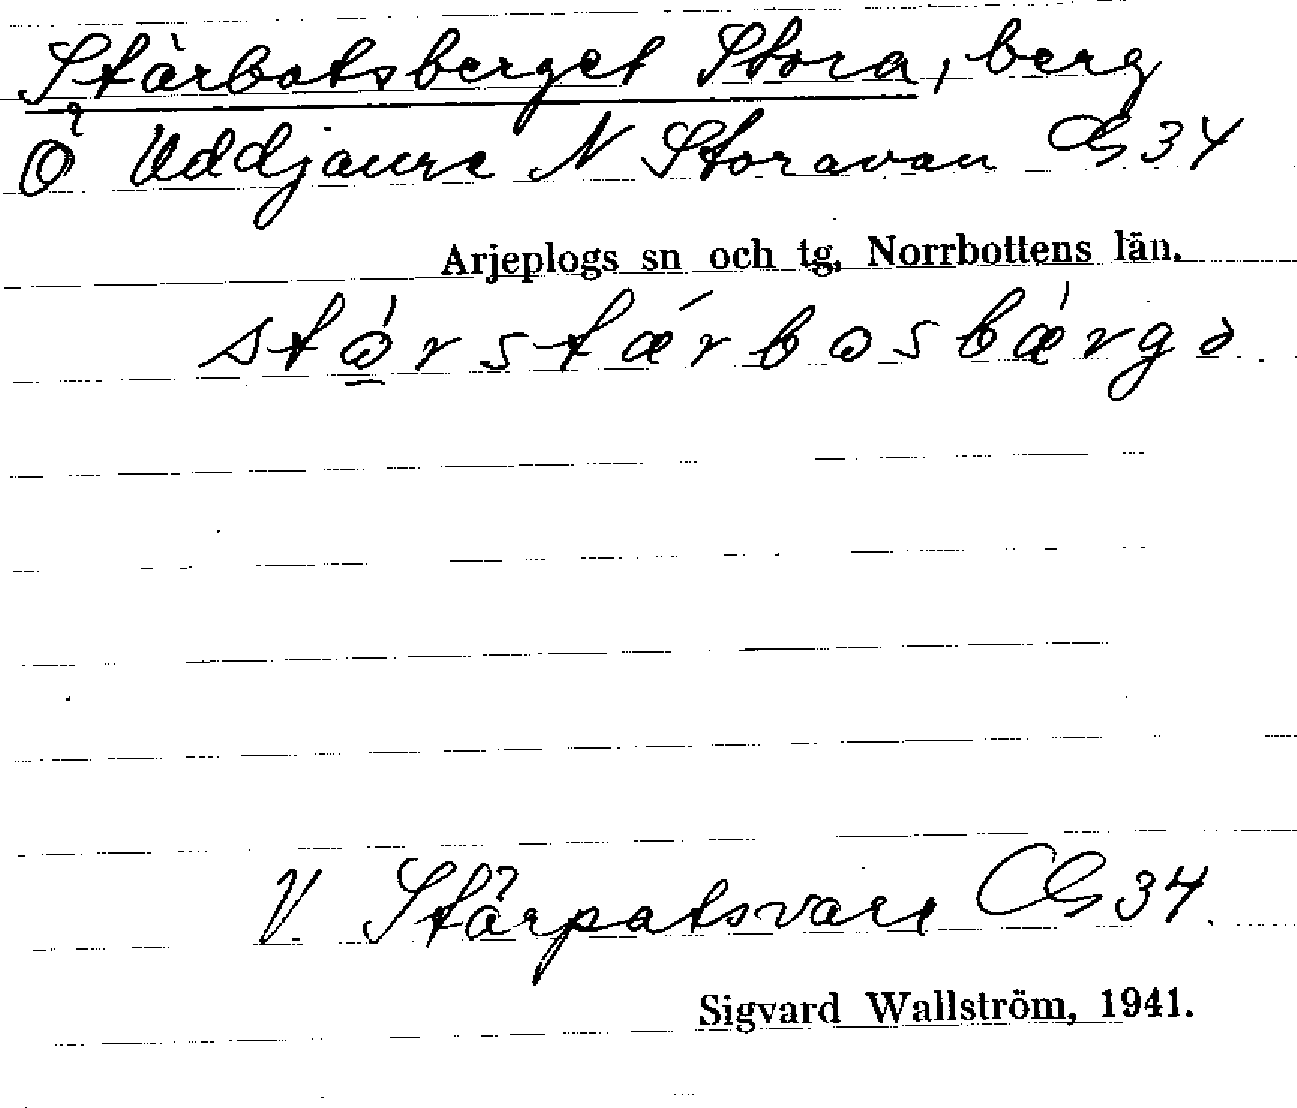 Stärbatsberget Stora, berg
Ö Uddjaure N Storavan GS 34
Arjeplogs sn och tg, Norrbottens län.
stó̱rstǽrbasbǽrgə
V. Stärpatsvare GS 34.
Sigvard Wallström, 1941.